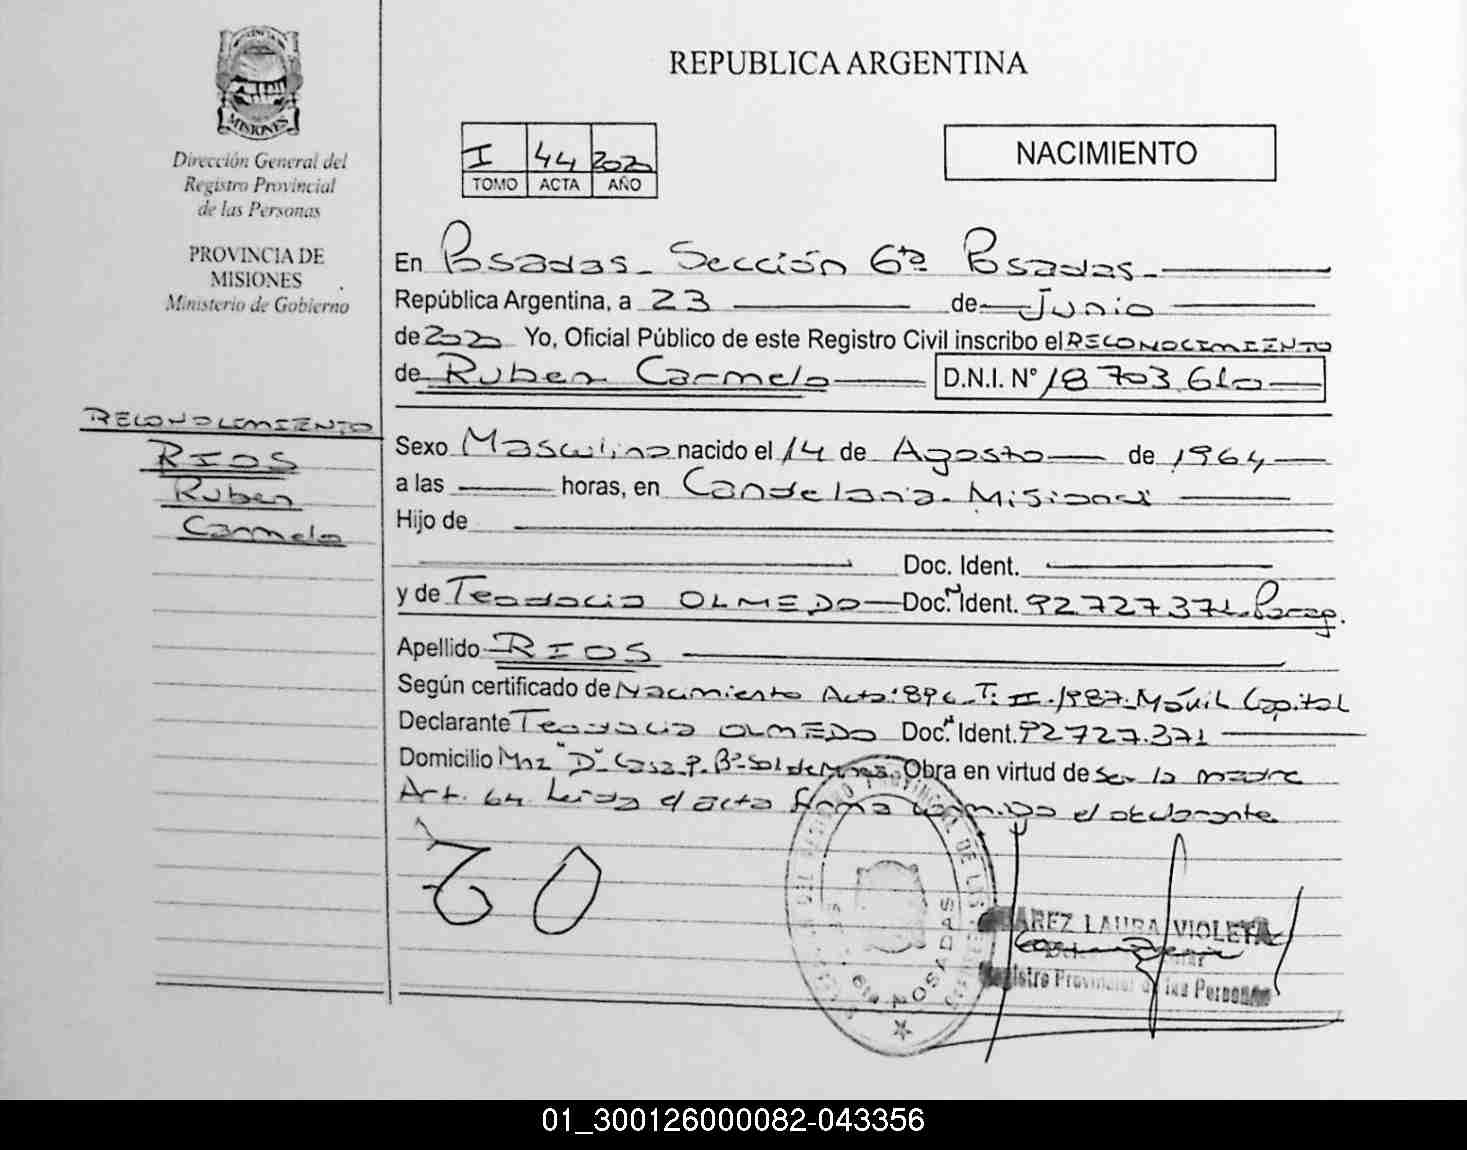 MISIONES
Dirección General del
Registro Provincial
de las Personas
PROVINCIA DE
MISIONES
Ministerio de Gobierno
RECONOCIMIENTO
RIOS
Ruben
Carmelo
REPUBLICA ARGENTINA
I 44 2020
TOMO ACTA AÑO
NACIMIENTO
En Posadas - Sección 6ta Posadas -
República Argentina, a 23 de Junio
de 2020 Yo, Oficial Público de este Registro Civil inscribo el RECONOCIMIENTO
de Ruben Carmelo D.N.I. N° 18 703 610
Sexo Masculino nacido el 14 de Agosto de 1964
a las horas, en Candelaria - Misiones
Hijo de
Doc. Ident.
y de Teodocia OLMEDO Doc. Ident. 92727371 - Parag.
Apellido RIOS
Según certificado de Nacimiento Acta: 896 - T: II - 1987 - Móvil Capital
Declarante Teodocia OLMEDO Doc. Ident. 92727.371
Domicilio Mnz "D" Casa 9. B° Sol de Obra en virtud de ser la madre
Art. 64 Leida el acta firma conmigo el declarante
POSADAS
AREZ LAURA VIOLETA
Registro Provincial de las Personas
01_300126000082-043356